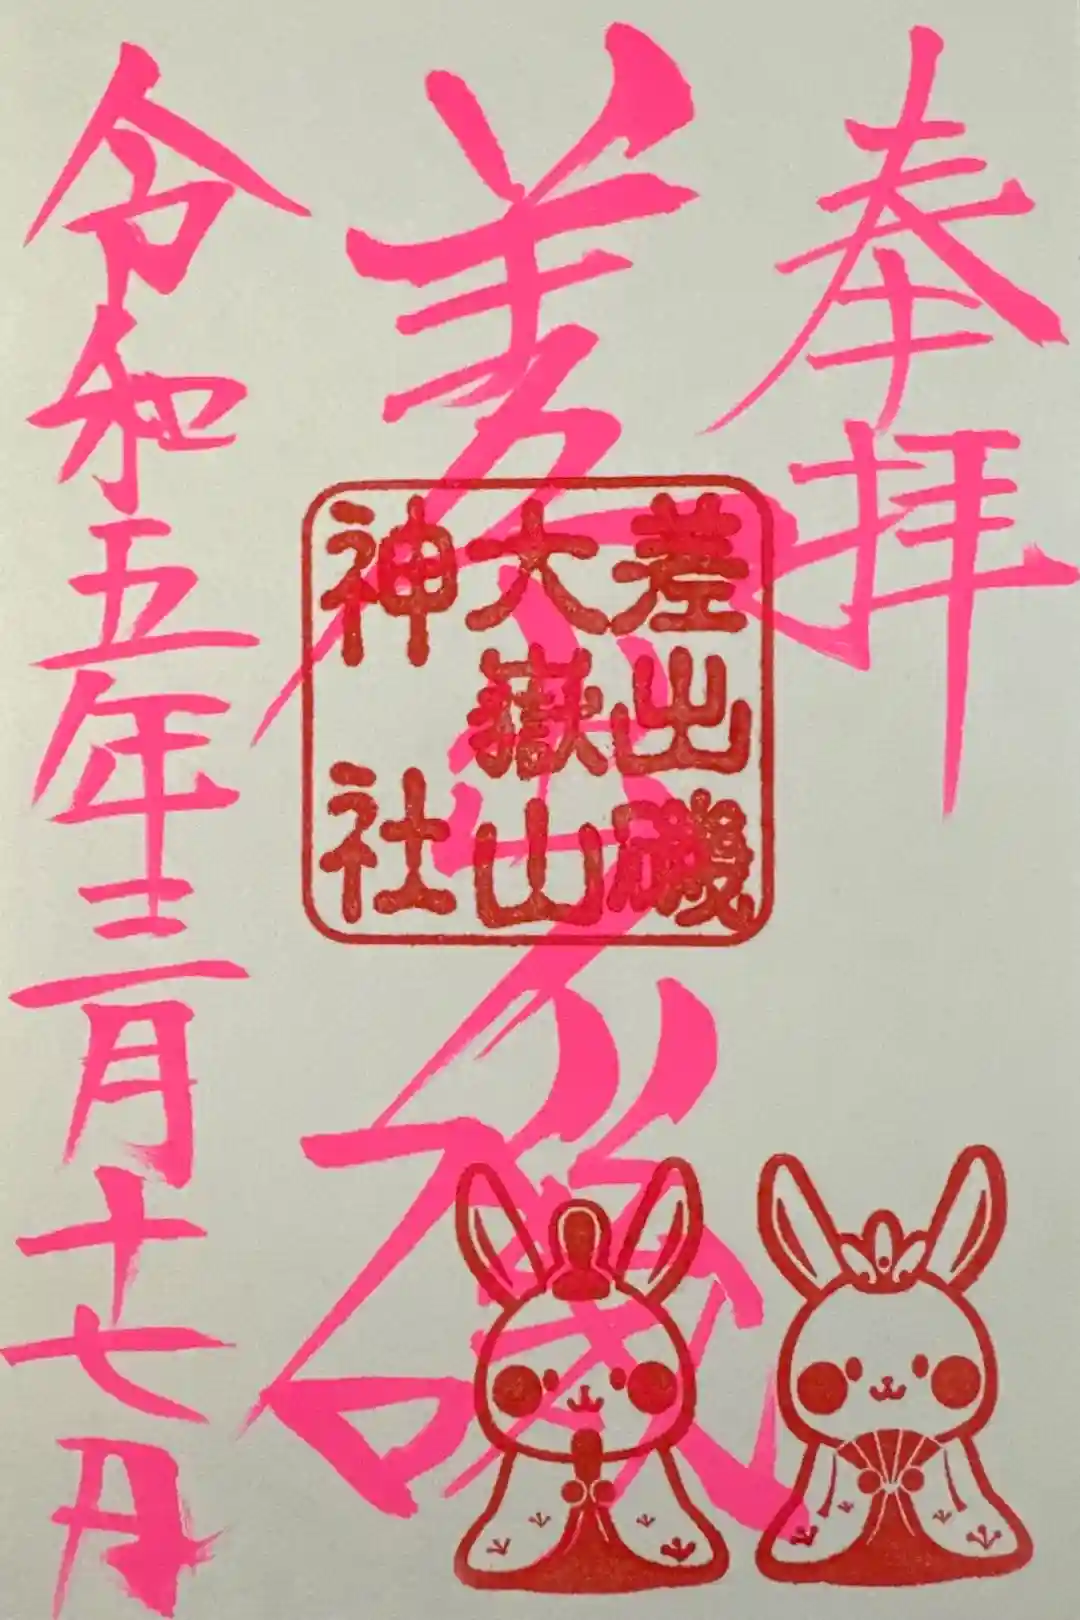 奉拝
差出磯
差出磯
大嶽山
神社
令和五年三月十七日